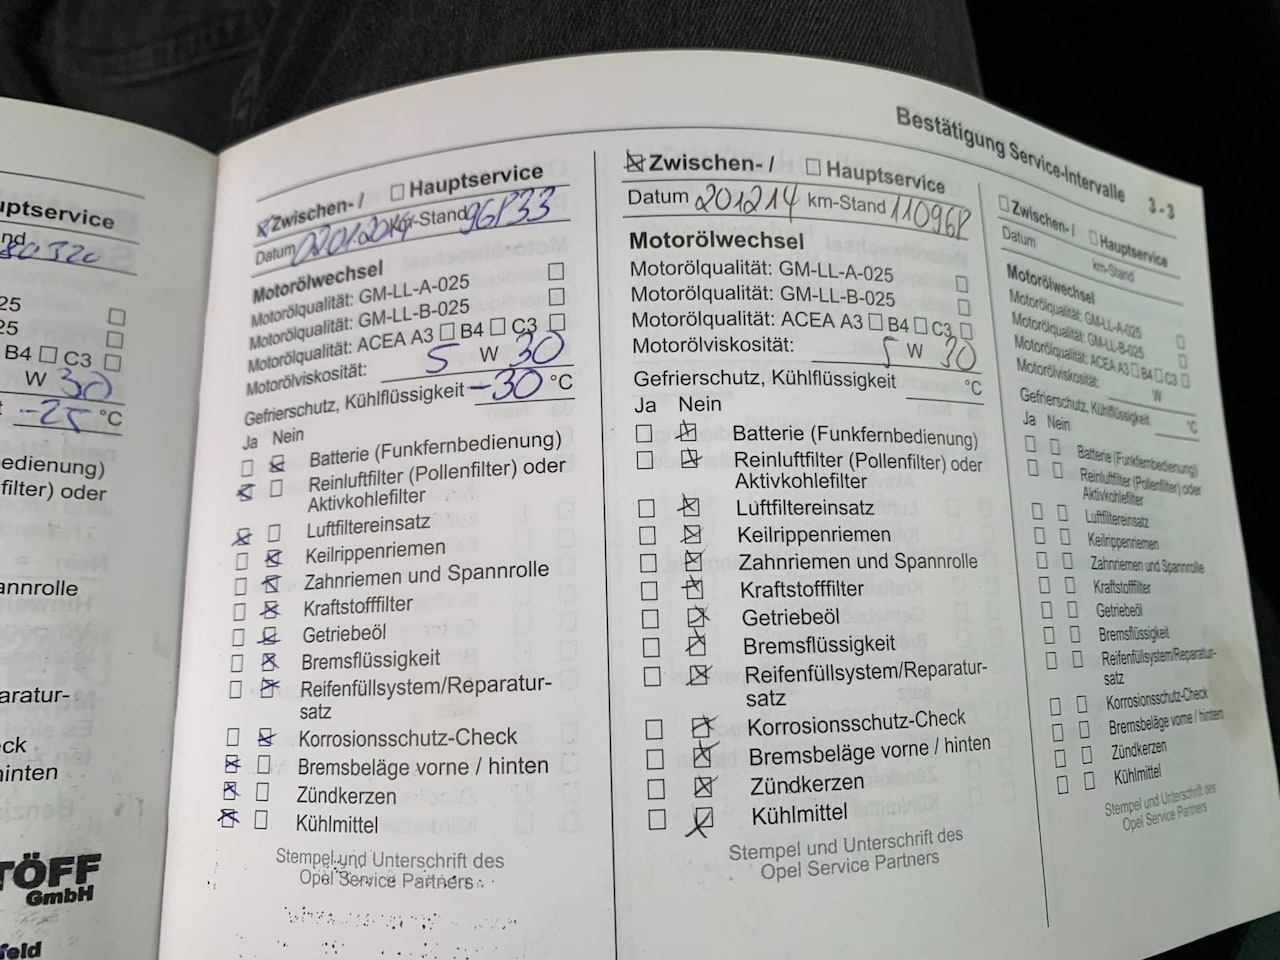 Bestätigung Service-Intervalle 3 - 3
uptservice
nd 80320
25
25
B4 C3
W 30
-25 °C
edienung)
filter) oder
annrolle
aratur-
ck
hinten
TÖFF
GmbH
feld
Zwischen- / Hauptservice
Datum 02.01.2014 km-Stand
Motorölwechsel
Motorölqualität: GM-LL-A-025
Motorölqualität: GM-LL-B-025
Motorölqualität: ACEA A3 B4 C3
Motorölviskosität: 5 W 30
Gefrierschutz, Kühlflüssigkeit -30 °C
Ja Nein
Batterie (Funkfernbedienung)
Reinluftfilter (Pollenfilter) oder
Aktivkohlefilter
Luftfiltereinsatz
Keilrippenriemen
Zahnriemen und Spannrolle
Kraftstofffilter
Getriebeöl
Bremsflüssigkeit
Reifenfüllsystem/Reparatur-
satz
Korrosionsschutz-Check
Bremsbeläge vorne / hinten
Zündkerzen
Kühlmittel
Stempel und Unterschrift des
Opel Service Partners
Zwischen- / Hauptservice
Datum 201214 km-Stand
Motorölwechsel
Motorölqualität: GM-LL-A-025
Motorölqualität: GM-LL-B-025
Motorölqualität: ACEA A3 B4 C3
Motorölviskosität: 5 W 30
Gefrierschutz, Kühlflüssigkeit °C
Ja Nein
Batterie (Funkfernbedienung)
Reinluftfilter (Pollenfilter) oder
Aktivkohlefilter
Luftfiltereinsatz
Keilrippenriemen
Zahnriemen und Spannrolle
Kraftstofffilter
Getriebeöl
Bremsflüssigkeit
Reifenfüllsystem/Reparatur-
satz
Korrosionsschutz-Check
Bremsbeläge vorne / hinten
Zündkerzen
Kühlmittel
Stempel und Unterschrift des
Opel Service Partners
Zwischen- / Hauptservice
Datum km-Stand
Motorölwechsel
Motorölqualität: GM-LL-A-025
Motorölqualität: GM-LL-B-025
Motorölqualität: ACEA A3 B4 C3
Motorölviskosität: W
Gefrierschutz, Kühlflüssigkeit °C
Ja Nein
Batterie (Funkfernbedienung)
Reinluftfilter (Pollenfilter) oder
Aktivkohlefilter
Luftfiltereinsatz
Keilrippenriemen
Zahnriemen und Spannrolle
Kraftstofffilter
Getriebeöl
Bremsflüssigkeit
Reifenfüllsystem/Reparatur-
satz
Korrosionsschutz-Check
Bremsbeläge vorne / hinten
Zündkerzen
Kühlmittel
Stempel und Unterschrift des
Opel Service Partners